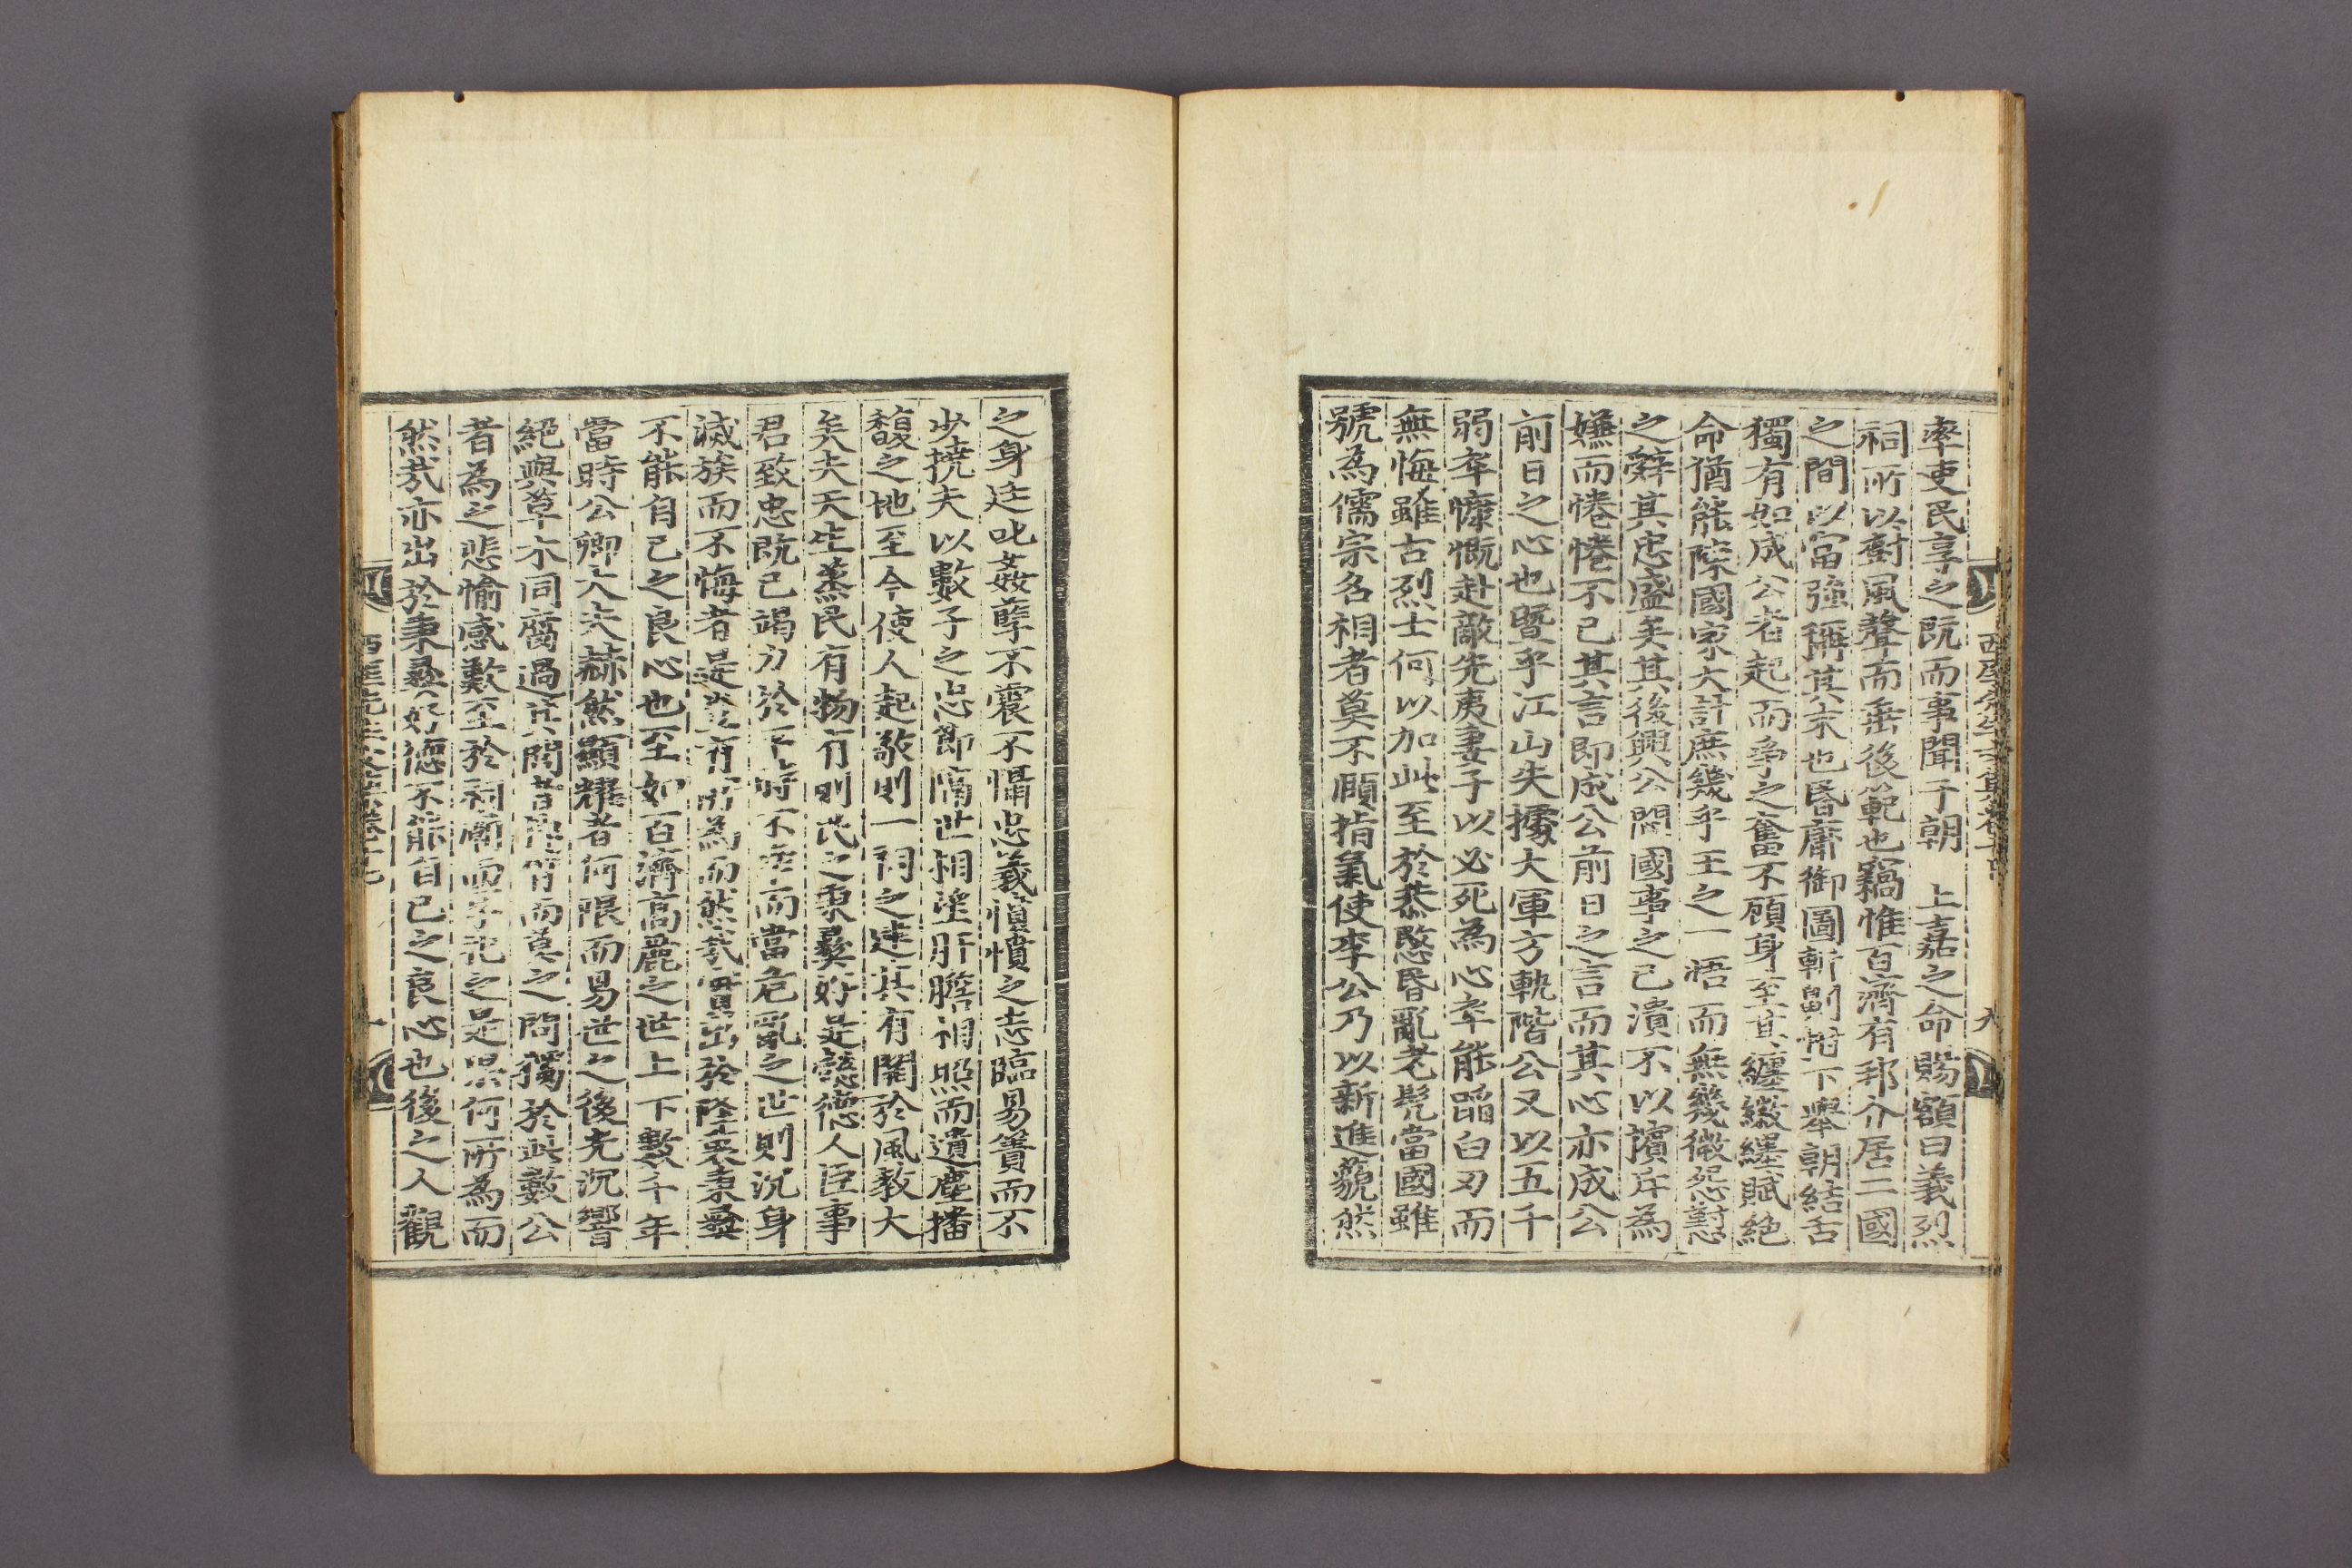 率吏民享之既而事聞于朝 上嘉之命賜額曰義烈
祠所以樹風聲而垂後範也竊惟百濟有邦介居二國
之間以富強稱其末也昏庸御圖斬劓樹下舉朝結舌
獨有如成公者起而爭之奮不顧身至其纏徽纆賦絕
命猶能陳國家大計庶幾乎王之一悟而無幾微怨懟
之辭其忠盛矣其後興公悶國事之已潰不以擯斥為
嫌而惓惓不已其言即成公前日之言而其心亦成公
前日之心也曁乎江山失據大軍方軌階公又以五千
弱卒慷慨赴敵先夷妻子以必死為心卒能蹈白刃而
無悔雖古烈士何以加此至於恭愍昏亂老髡當國雖
號為儒宗名相者莫不頤指氣使李公乃以新進藐然
之身廷叱姦孽不震不懾忠義憤憤之志臨易簀而不
少撓夫以數子之忠節隔世相望肝膽相照而遺塵播
馥之地至今使人起敬則一祠之建其有關於風教大
矣夫天生蒸民有物有則民之秉彝好是懿德人臣事
君致忠既已竭力於平時不幸而當危亂之世則沉身
滅族而不悔者是豈有所為而然哉實出於降衷秉彝
不能自已之良心也至如百濟高麗之世上下數千年
當時公卿大夫赫然顯耀者何限而易世之後光沉響
絕與草木同腐過其閭者皆而莫之問獨於此數公
者為之悲愉感歎至於祠廟而享祀之是果何所為而
然哉亦出於秉彝好德不能自已之良心也後之人觀
西厓先生文集卷十七